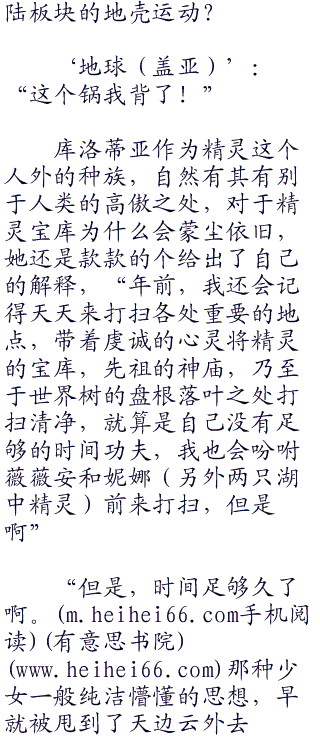 陆板块的地壳运动？
‘地球（盖亚）’：
“这个锅我背了！”
库洛蒂亚作为精灵这个
人外的种族，自然有其有别
于人类的高傲之处，对于精
灵宝库为什么会蒙尘依旧，
她还是款款的个给出了自己
的解释，“年前，我还会记
得天天来打扫各处重要的地
点，带着虔诚的心灵将精灵
的宝库，先祖的神庙，乃至
于世界树的盘根落叶之处打
扫清净，就算是自己没有足
够的时间功夫，我也会吩咐
薇薇安和妮娜（另外两只湖
中精灵）前来打扫，但是
啊”
“但是，时间足够久了
啊。(m.heihei66.com手机阅
读)(有意思书院)
(www.heihei66.com)那种少
女一般纯洁懵懂的思想，早
就被甩到了天边云外去